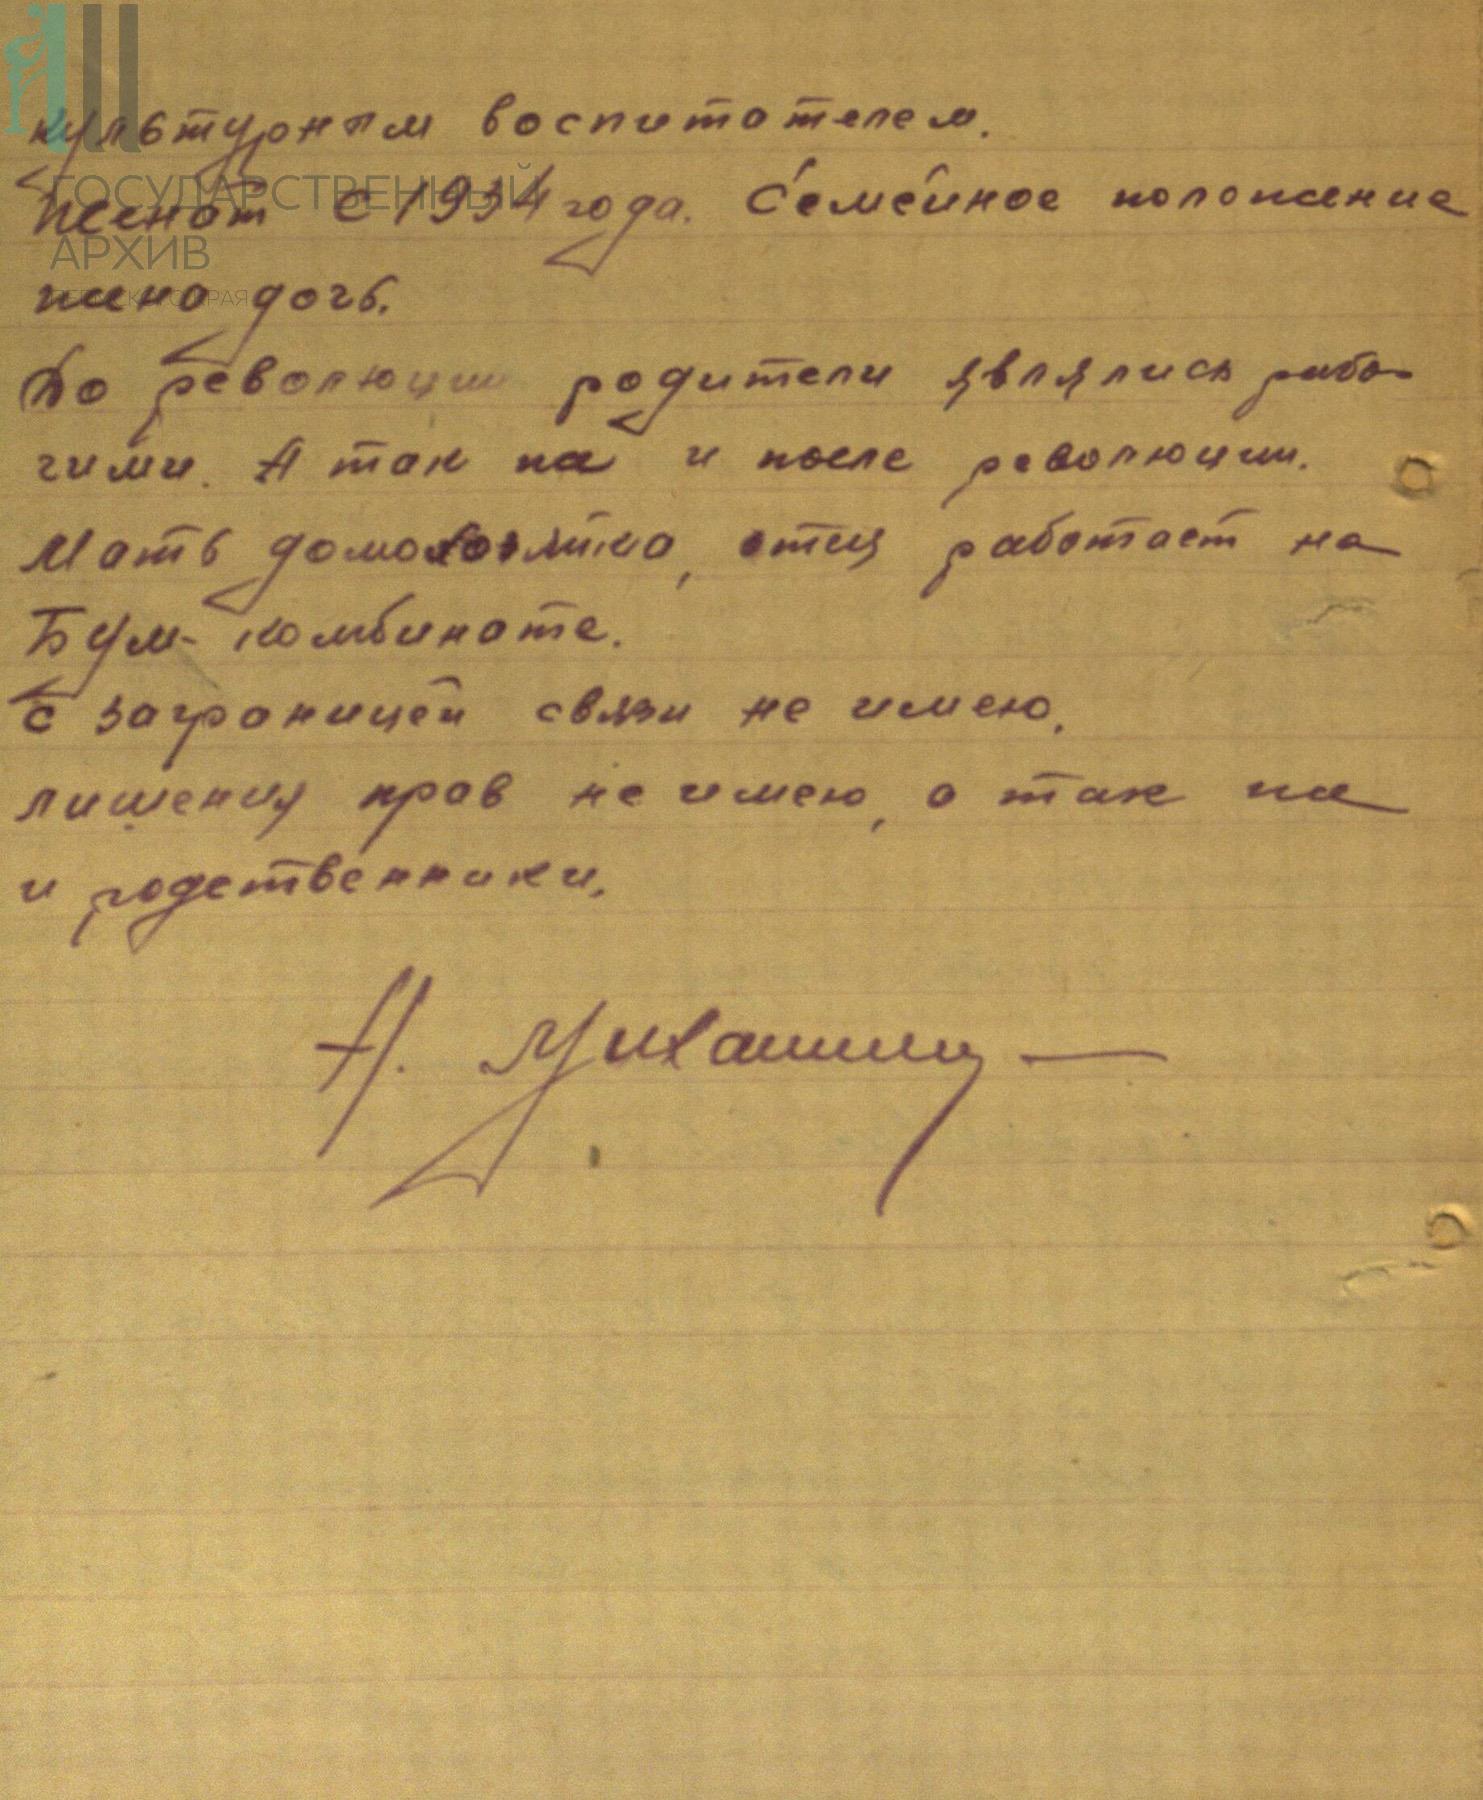 культурным воспитателем.
ГОСУДАРСТВЕННЫЙ
женат с 1934 года. Семейное положение
АРХИВ
жена дочь.
До революции родители являлись рабо-
чими. А так же и после революции.
Мать домохозяйка, отец работает на
Бум-комбинате.
С заграницей связи не имею.
лишения прав не имею, а так же
и родственники.
А.